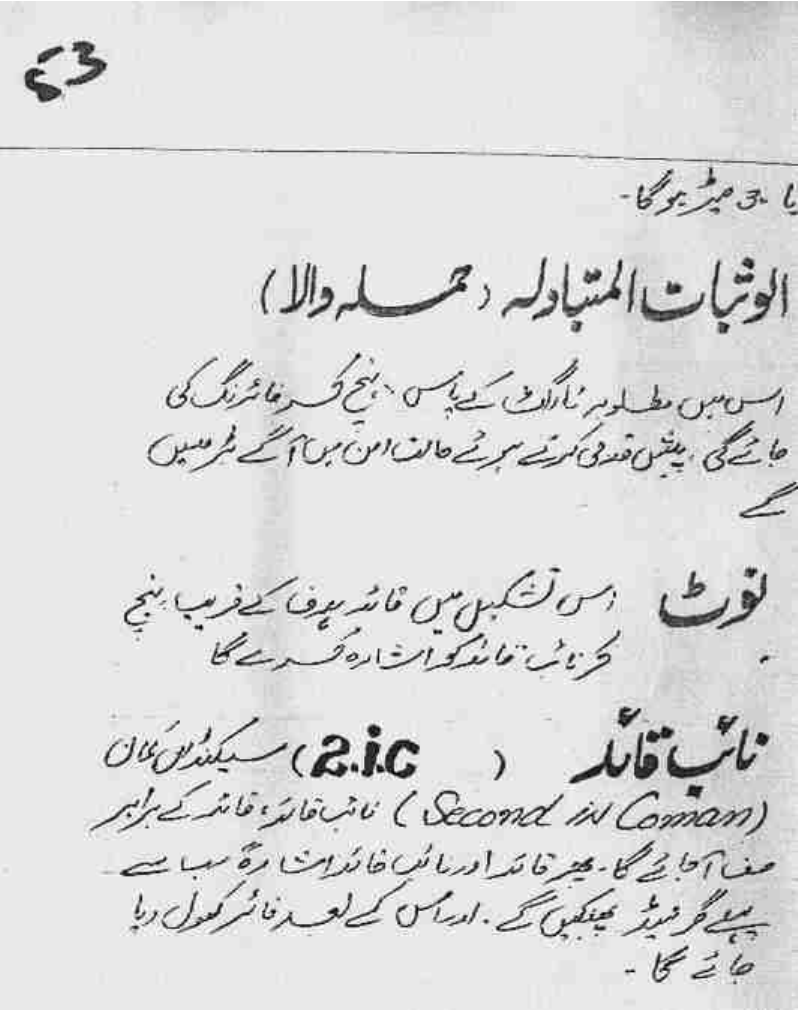 53
یا 30 میٹر ہوگا۔
الوثبات المتبادلہ (حملہ والا)
اس میں مطلوبہ ٹارگٹ کے پاس پہنچ کر فائرنگ کی
جائے گی، پیش قدمی کرتے ہوئے حالت امن میں آگے بڑھیں
گے
نوٹ اس تشکیل میں قائد ہدف کے قریب پہنچ
کر نائب قائد کو اشارہ کرے گا
نائب قائد (2.i.c) سیکنڈ اِن کمان
(Second in Coman) نائب قائد، قائد کے برابر
صف آجائے گا۔ پھر قائد اور نائب قائد اشارۃً سب سے
پہلے گرنیڈ پھینکیں گے۔ اور اس کے بعد فائر کھول دیا
جائے گا۔